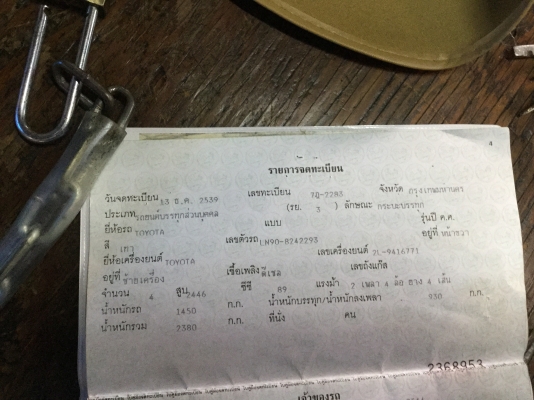 4
รายการจดทะเบียน
วันจดทะเบียน 13 ธ.ค. 2539 เลขทะเบียน 7Q-7283 จังหวัด กรุงเทพมหานคร
ประเภท รถยนต์บรรทุกส่วนบุคคล (รย. 3 ) ลักษณะ กระบะบรรทุก
ยี่ห้อรถ TOYOTA แบบ รุ่นปี ค.ศ.
สี เทา เลขตัวรถ LN90-8247293 อยู่ที่ หน้าขวา
ยี่ห้อเครื่องยนต์ TOYOTA เลขเครื่องยนต์ 2L-9416771
อยู่ที่ ซ้ายเครื่อง เชื้อเพลิง ดีเซล เลขถังแก๊ส
จำนวน 4 สูบ 2446 ซีซี 89 แรงม้า 2 เพลา 4 ล้อ ยาง 4 เส้น
น้ำหนักรถ 1450 ก.ก. น้ำหนักบรรทุก/น้ำหนักลงเพลา 930 ก.ก.
น้ำหนักรวม 2380 ก.ก. ที่นั่ง คน
2368953
เจ้าของรถ